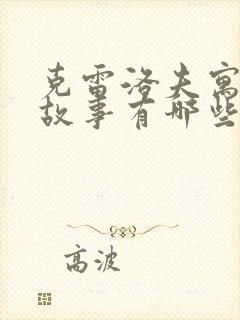 克雷洛夫寓
故事有哪些
高波